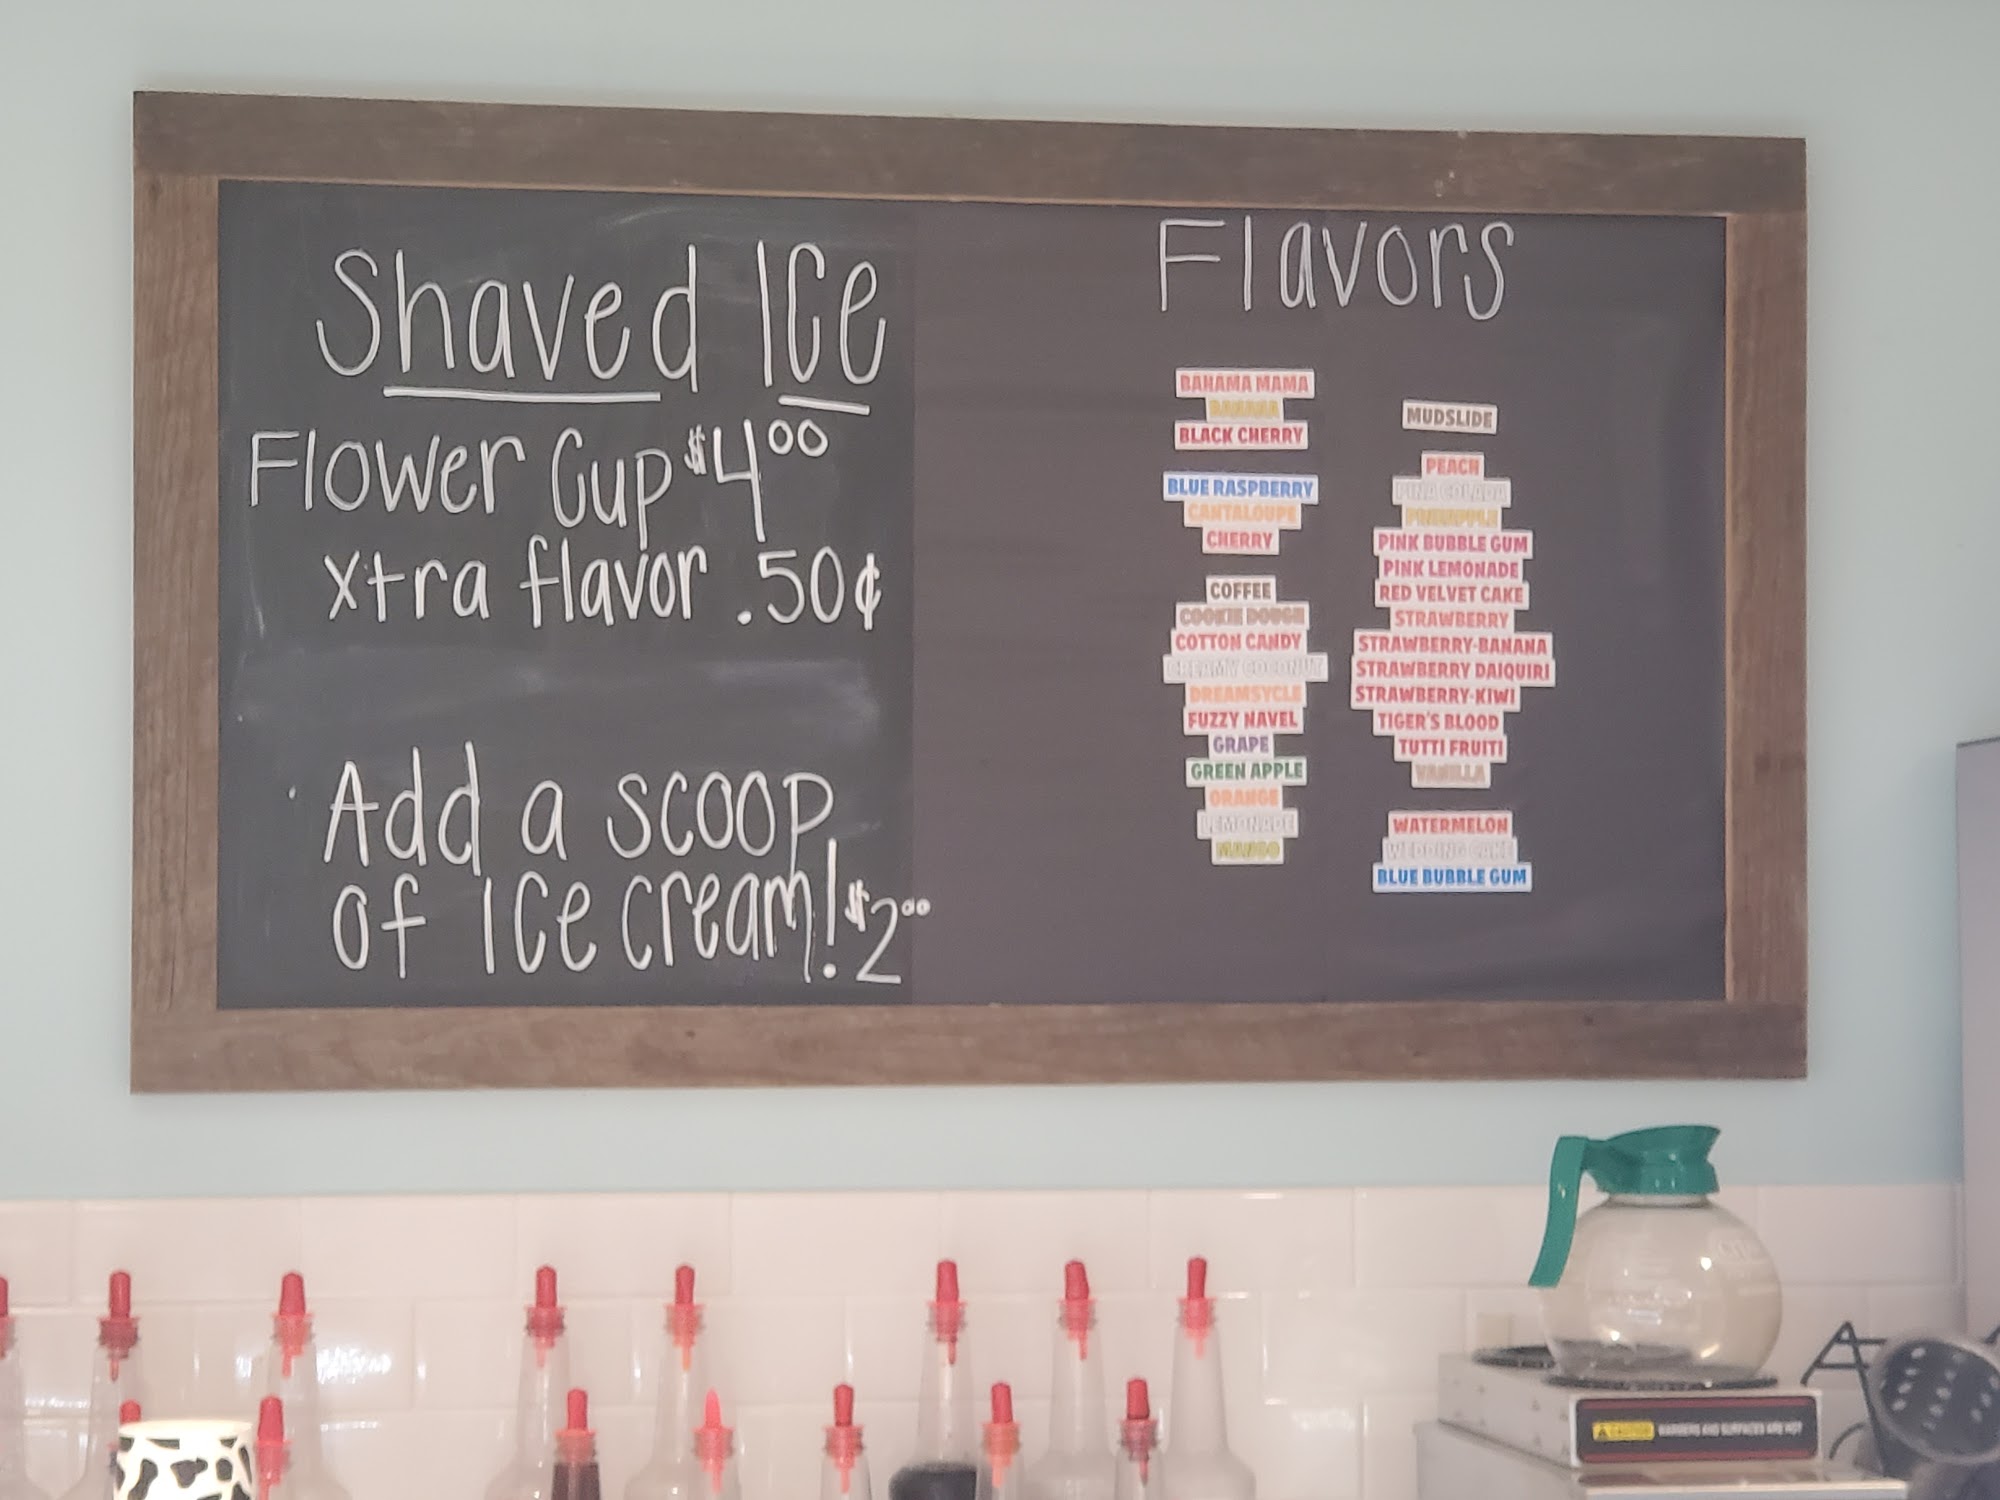 Shaved Ice
Flower Cup $4.00
xtra flavor .50¢
Add a scoop
of ice cream! $2.00
Flavors
BAHAMA MAMA
BANANA
BLACK CHERRY
BLUE RASPBERRY
CANTALOUPE
CHERRY
COFFEE
COOKIE DOUGH
COTTON CANDY
CREAMY COCONUT
DREAMSYCLE
FUZZY NAVEL
GRAPE
GREEN APPLE
ORANGE
LEMONADE
MANGO
MUDSLIDE
PEACH
PINA COLADA
PINEAPPLE
PINK BUBBLE GUM
PINK LEMONADE
RED VELVET CAKE
STRAWBERRY
STRAWBERRY-BANANA
STRAWBERRY DAIQUIRI
STRAWBERRY-KIWI
TIGER'S BLOOD
TUTTI FRUITI
VANILLA
WATERMELON
WEDDING CAKE
BLUE BUBBLE GUM
CAUTION WARMERS AND SURFACES ARE HOT